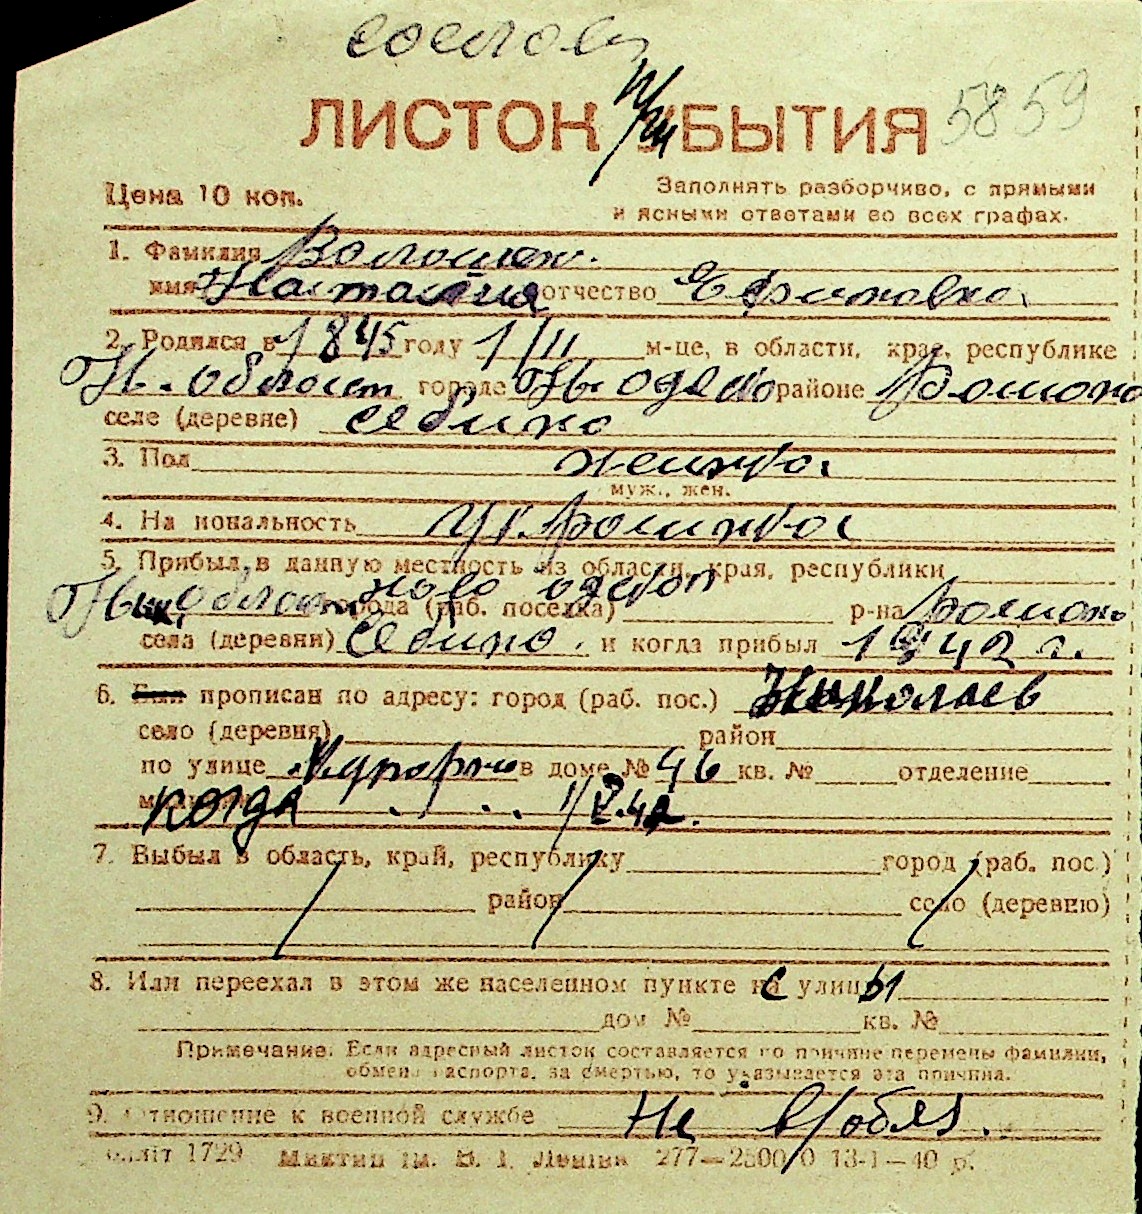 5859
ЛИСТОК ПРИБЫТИЯ
Цена 10 коп.
Заполнять разборчиво, с прямыми
и ясными ответами во всех графах.
1. Фамилия Волошен.
имя Наталия отчество Ефимовна
2. Родился в 1845 году 1/II м-це, в области, крае, республике
Ник. област городе Нов одеса районе
селе (деревне) Себино
3. Пол женска
муж., жен.
4. Национальность Украинка
5. Прибыл в данную местность из области, края, республики
Ник. област города (раб. поселка) ново одесоп р-на
села (деревни) Себино. и когда прибыл 1942 г.
6. Был прописан по адресу: город (раб. пос.) Николаев
село (деревня) район
по улице в доме № 46 кв. № отделение
когда 1/2.42.
7. Выбыл в область, край, республику город (раб. пос.)
район село (деревню)
8. Или переехал в этом же населенном пункте с улицы
дом № кв. №
Примечание. Если адресный листок составляется по причине перемены фамилии,
обмена паспорта, за смертью, то указывается эта причина.
9. Отношение к военной службе Не в/обяз.
1729 ім. В. І. Леніна 277—2500/0 13-1—40 р.